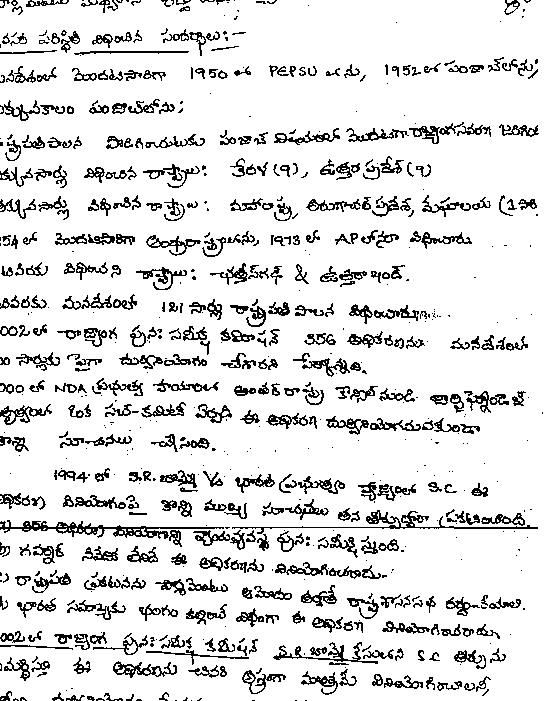 పరిస్థితి విధించిన సందర్భాలు:-
మనదేశంలో మొదటిసారిగా 1950 లో PEPSU లోను, 1952 లో పంజాబ్‌లోను;
ఎక్కువకాలం పంజాబ్‌లోను;
రాష్ట్రపతిపాలన పొడిగించుటకు పంజాబ్ విషయంలో మొదటగా రాజ్యాంగసవరణ జరిగింది
ఎక్కువసార్లు విధించిన రాష్ట్రాలు: కేరళ (9), ఉత్తర ప్రదేశ్ (9)
తక్కువసార్లు విధించిన రాష్ట్రాలు: మహారాష్ట్ర, అరుణాచల్ ప్రదేశ్, మేఘాలయ
54 లో మొదటిసారిగా ఆంధ్రరాష్ట్రంలోను, 1973 లో AP లోనూ విధించారు
విధించని రాష్ట్రాలు: ఛత్తీస్‌గఢ్ & ఉత్తరాఖండ్.
మనదేశంలో 121 సార్లు రాష్ట్రపతి పాలన విధించారు
002 లో రాజ్యాంగ పునః సమీక్ష కమిషన్ 356 అధికరణను మనదేశంలో
సార్లుకు పైగా దుర్వినియోగం చేశారని పేర్కొన్నది.
000 లో NDA ప్రభుత్వ హయాంలో అంతర రాష్ట్ర కౌన్సిల్ నుండి జార్జిఫెర్నాండెజ్
ఒక సబ్-కమిటీ ఏర్పడి ఈ అధికరణ దుర్వినియోగమవకుండా
సూచనలు చేసింది.
1994 లో S.R. బొమ్మై V/s భారత ప్రభుత్వం వ్యాజ్యంలో S.C ఈ
అధికరణ వినియోగంపై కొన్ని ముఖ్య సూచనలు తన తీర్పుద్వారా ప్రకటించింది.
356 అధికరణ వినియోగాన్ని న్యాయవ్యవస్థ పునః సమీక్షిస్తుంది.
గవర్నర్ నివేదిక లేనిదే ఈ అధికరణను వినియోగించరాదు.
రాష్ట్రపతి ప్రకటనను పార్లమెంటు ఆమోదం తర్వాతే రాష్ట్రశాసనసభ రద్దు చేయాలి.
భారత సమాఖ్యకు భంగం కల్గించే విధంగా ఈ అధికరణ వినియోగించరాదు
002 లో రాజ్యాంగ పునః సమీక్ష కమీషన్ S.R. బొమ్మై కేసులోని S.C తీర్పును
ఈ అధికరణను చివరి అస్త్రంగా మాత్రమే వినియోగించాలనీ,